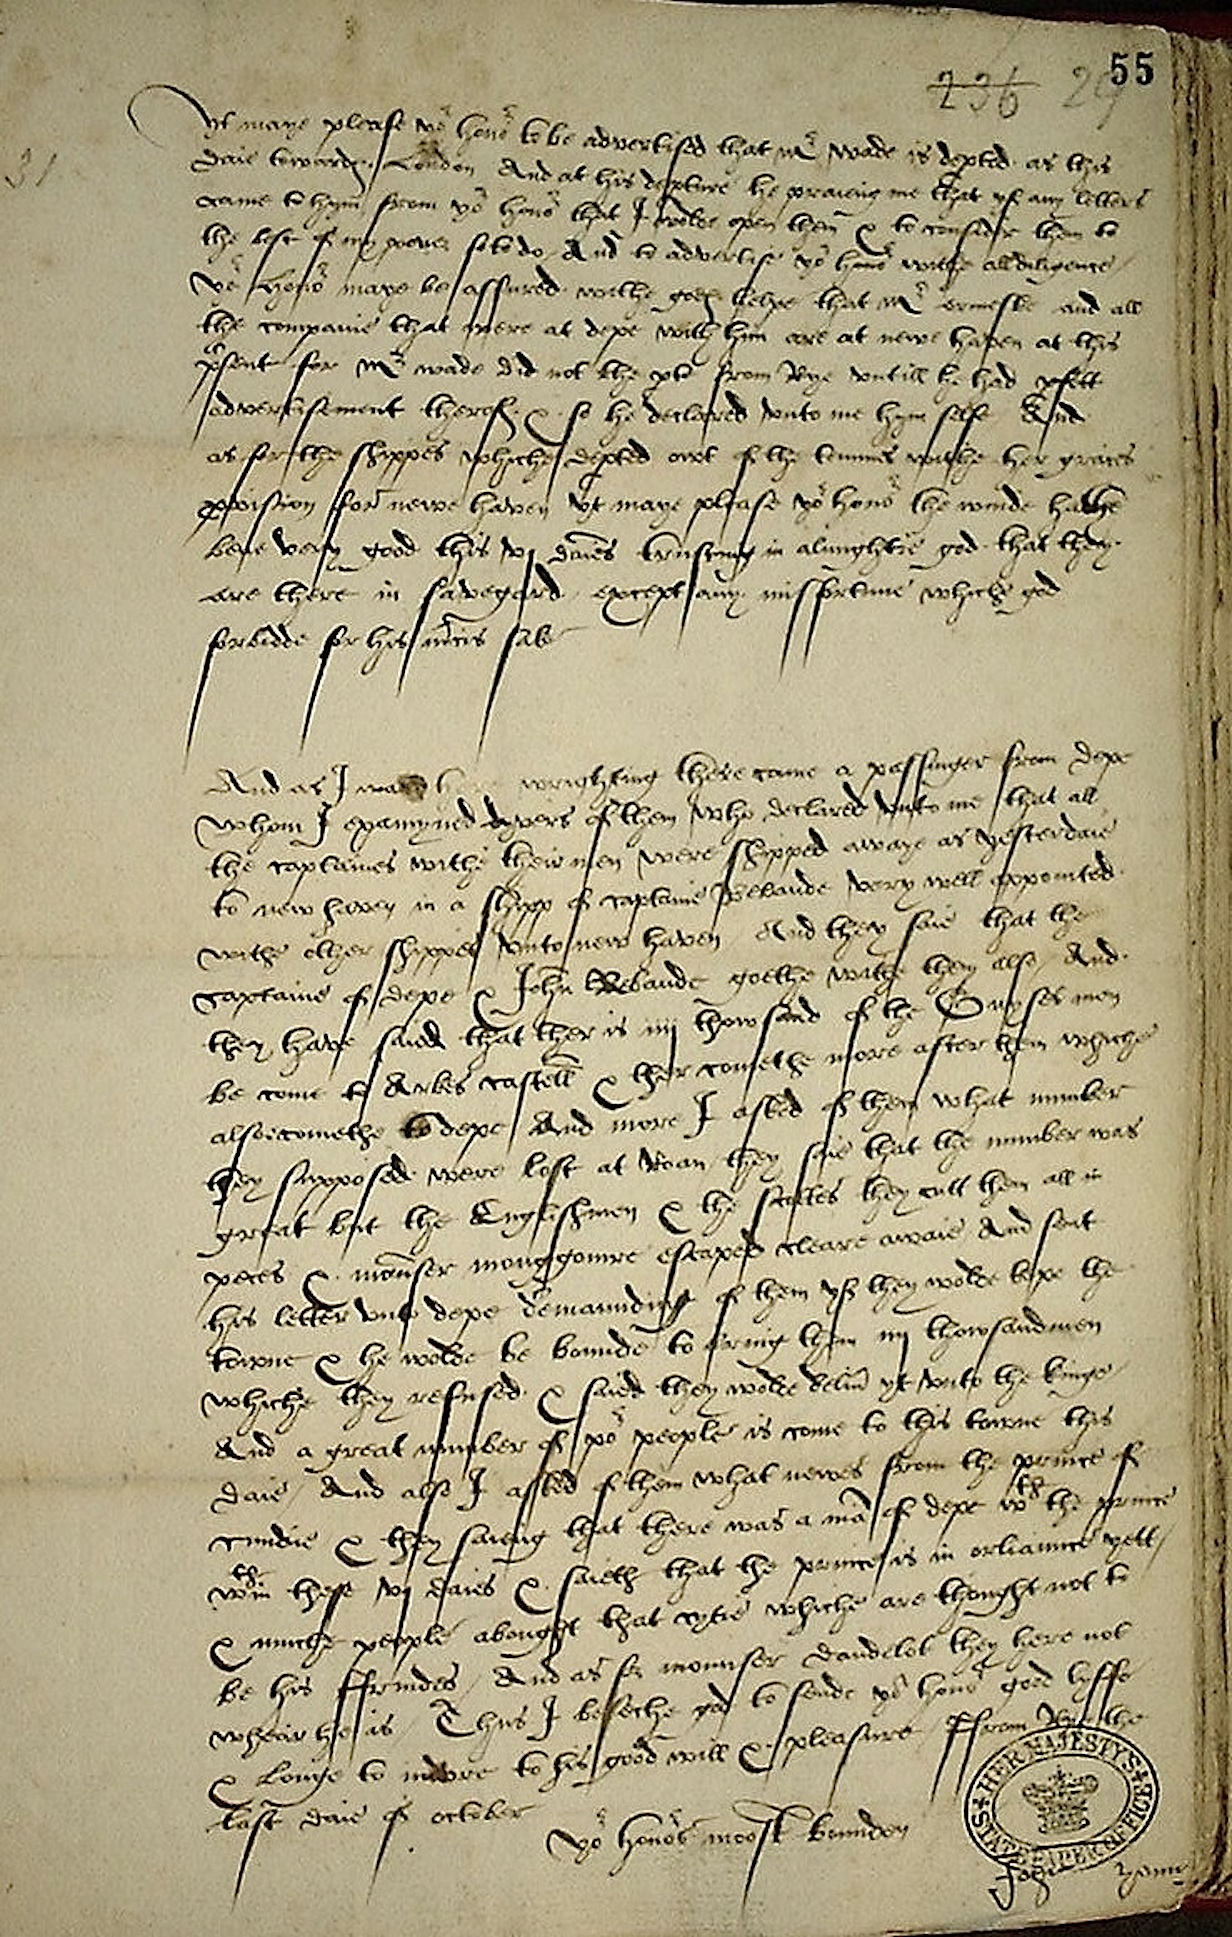 55
236 29
31
Yt maye please yor honor to be advertised that Mr wade is depted as this
daie towards London And at his depture he praieng me that yf any letters
came to hym from yor honor that I wolde open them & to consider them to
the best of my power so to do And to advertise yor honor withe all diligence
Yor honor maye be assured withe gods helpe that Mr ormesbe and all
the companie that were at depe with him are at newe haven at this
psent for Mr wade did not the pte from Rye untill he had pfett
advertisement therof & so he declared unto me hym selfe And
as for the shippes whiche depted owt of the temmes withe her graces
pvision for newe haven Yt maye please yor honor the winde hathe
bene very good this vj daies trusting in almightie god that they
are there in savegard except any missfortune whiche god
forbidde for his mcis sake
And as I was wrighting there came a passinger from depe
whom I examyned dyvers of them who declared unto me that all
the captaines withe their men were shipped awaye as yesterdaie
to new haven in a shipp of captaine Rebaude very well appointed
withe other shippes unto new haven And they saie that the
captaine of depe & John Rebaude goethe withe them also And
they have saied that ther is iiij thowsand of the Guyses men
be come to Arkes castell & ther comethe more after them whiche
also comethe to depe And more I asked of them what number
they supposed were lost at Roan they saie that the number was
great but the Englishmen & the scottes they cutt them all in
peces & mounser monggomre escaped cleare awaie And sent
his letter unto depe demaunding of them yf they wolde kepe the
towne & he wolde be bounde to bring them iiij thowsand men
whiche they refused & saied they wolde delivr yt unto the kinge
And a great number of por people is come to this towne this
daie And also I asked of them what newes from the prince of
cundie & they saieng that there was a man of depe wth the prince
wthin these vj daies & saieth that the prince is in orliaunce yett
& muche people abought that cytie whiche are thought not to
be his ffrindes And as for mounser dandelot they here not
whear he is Thus I beseche god to sende yor honor good lyffe
& longe to indure to his good will & pleasure ffrom Rye the
last daie of october
yor honors moost bounden
John yonn
HER MAJESTY'S STATE PAPER OFFICE